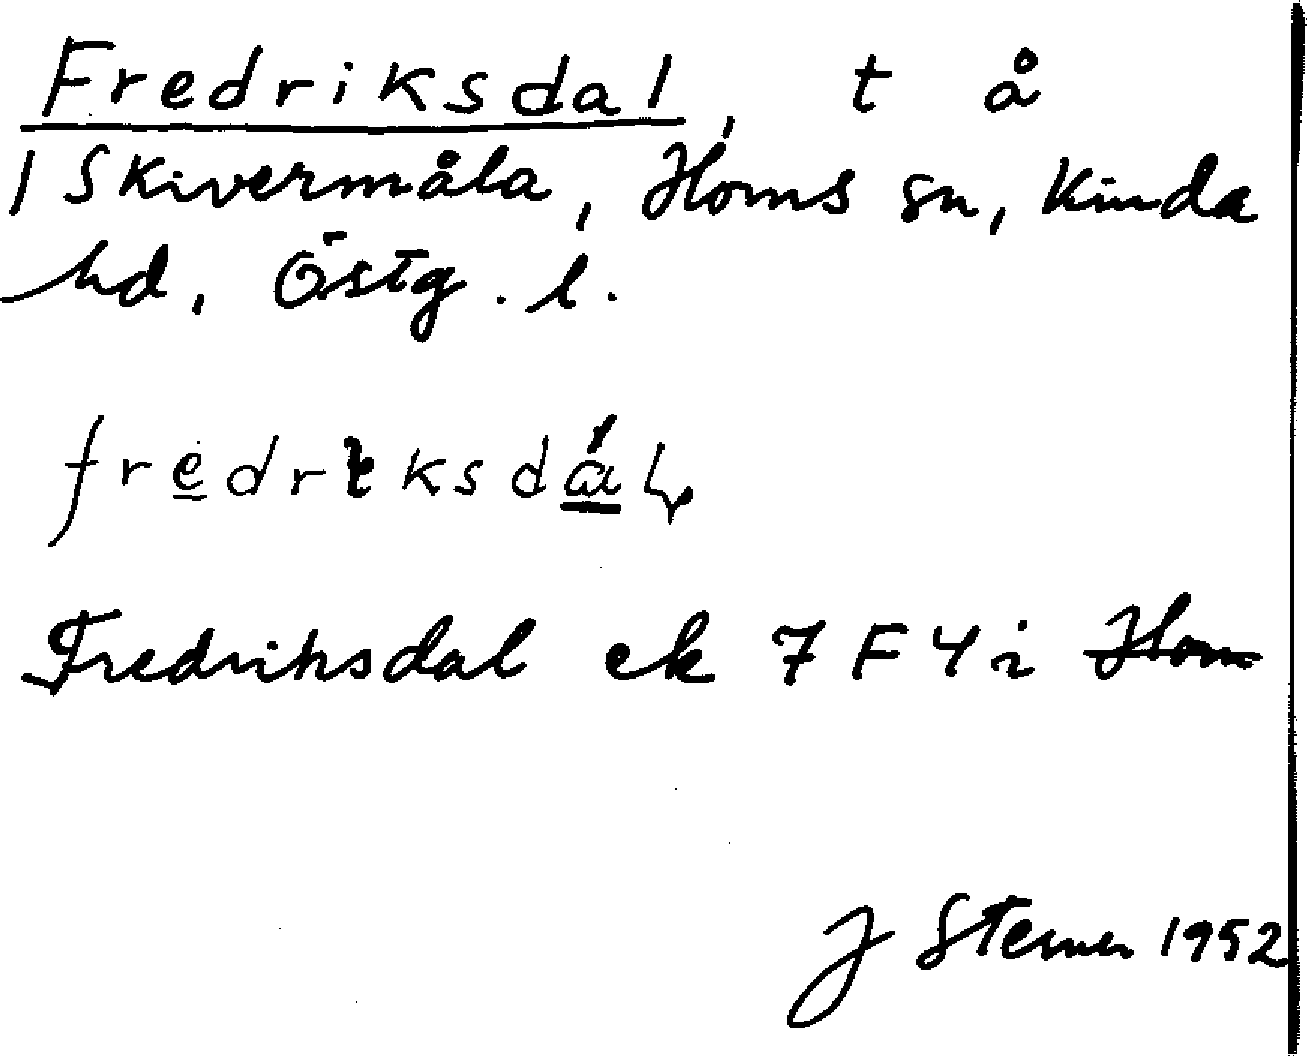 Fredriksdal, t å
1 Skivermåla, Horns sn, Kinda
hd, Östg. l.
fredrɩksdál
Fredriksdal ek 7 F 4 i Horn
J Sterner 1952